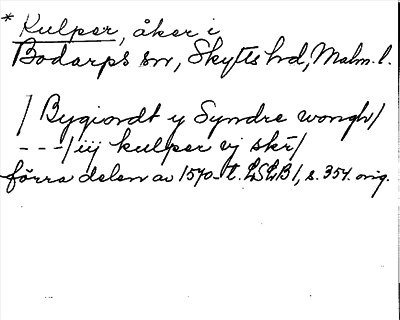 * Kulper, åker i
Bodarps sn, Skytts hd, Malm. l.
/ Bygiordt y Syndre wongh/
- - -/ iij kulper vj skr̄/
förra delen av 1570-t. LSLB1, s. 354. orig.